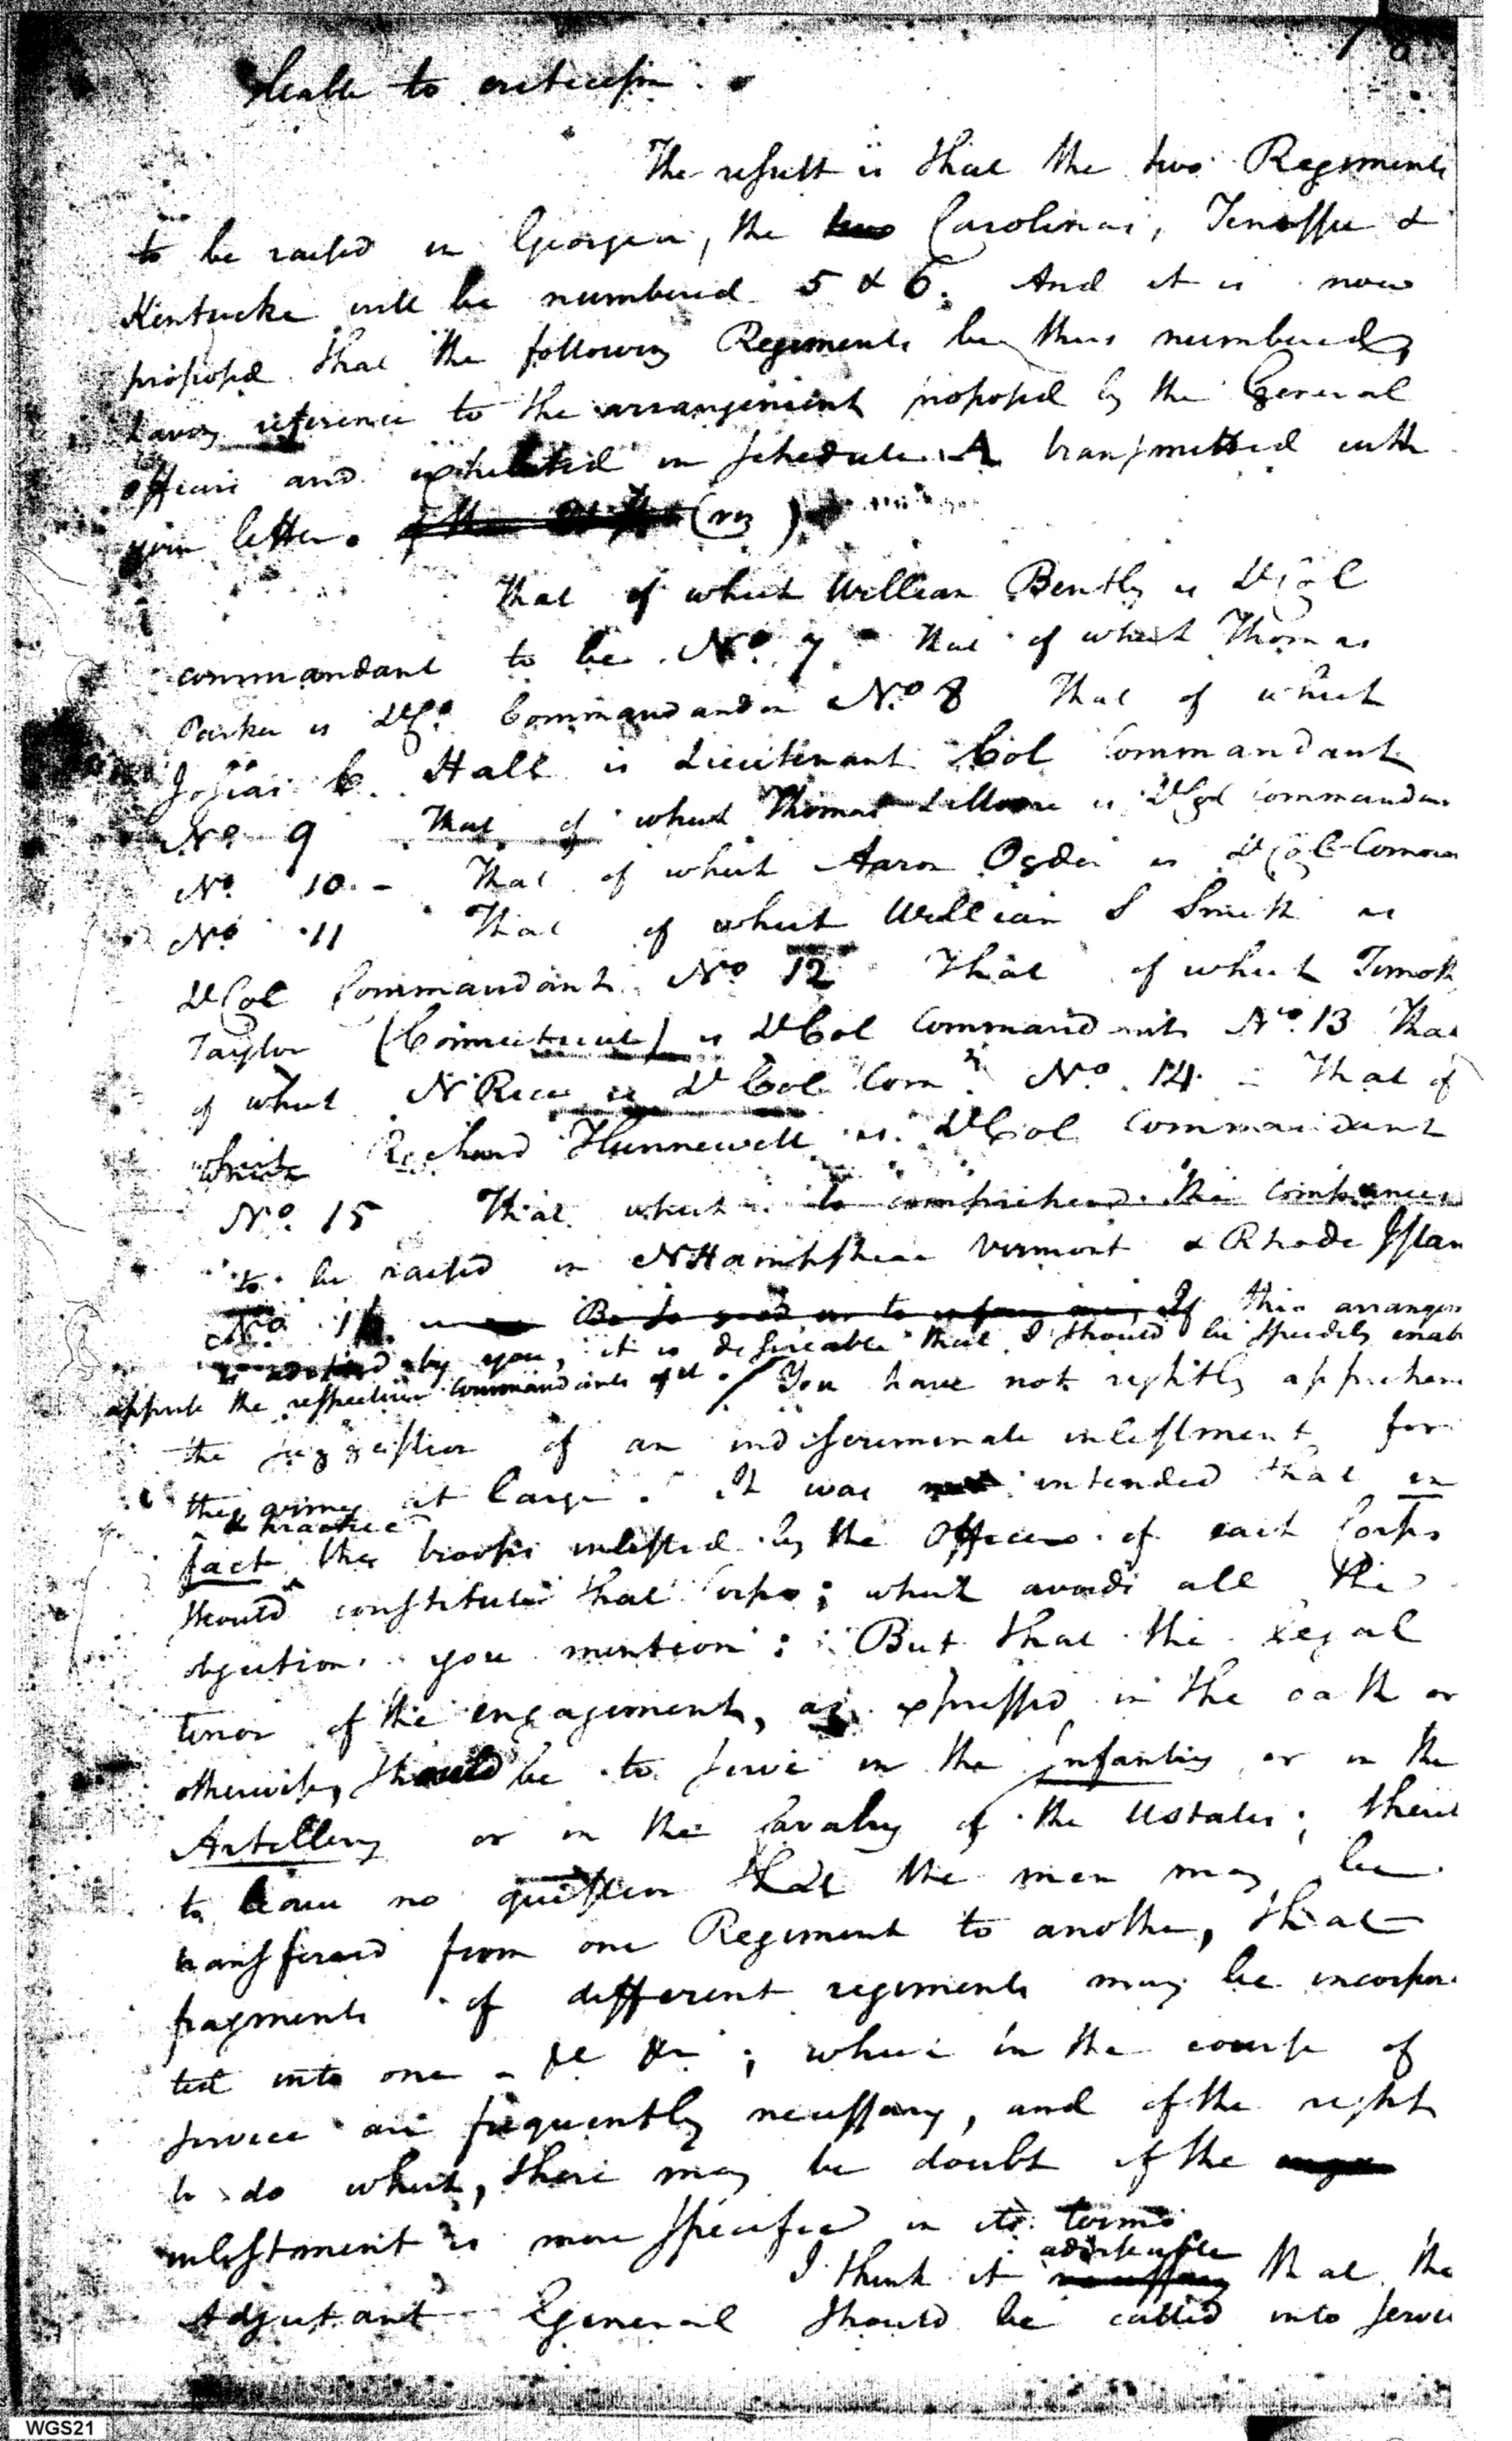 liable to criticism.
The result is that the two Regiments
to be raised in Georgia, the two Carolinas, Tenessee &
Kentucke will be numbered 5 & 6. And it is now
proposed that the following Regiments be thus numbered,
having reference to the arrangement proposed by the General
officers and exhibited in schedule A transmitted with
your letter. (viz)
That of which William Bently is Lt Col
commandant to be No. 7 That of which Thomas
Parker is Lt Co. Commandandn No. 8 That of which
Josias C. Hall is Lieutenant Col Commandant
No. 9 That of which Thomas Lillmore is Lt Col Commandan
No. 10. - That of which Aaron Ogden is Lt Col Comm
No 11 That of which William S Smith is
Lt Col Commandant No 12 That of which Timoth
Taylor (Connecticut) is Lt Col Commandant No. 13 That
of which N Rice is Lt Col Com No. 14 - That of
which Richard Hunnewell is Lt Col Commandant
No. 15 That which is to comprehend the companies
to be raised in NHampshire Vermont & Rhode Islan
No. 16 Be so good as to inform me, If this arrangem
is adopted by you, it is desireable that I should be speedily enab
apprise the respective Commandants of it. / You have not rightly apprehen
the suggestion of an indiscriminate inlistment for
the army at large. It was intended that in
& practice
fact the troops inlisted by the Officers of each Corps
should constitute that corps; which avoids all the
objections you mention: But that the legal
tenor of the engagement, as expressed in the oath or
otherwise, should be to serve in the infantry or in the
Artillery or in the Cavalry of the UStates; there
to leave no question that the men may be
transferred from one Regiment to another, that
fragments of different regiments may be incorpor
ted into one - &c &c; which in the course of
service are frequently necessary, and of the right
to do which, there may be doubt if the
inlistment is more specified in its terms
adviseable
I think it necessary that the
Adjutant General should be called into servi
WGS21